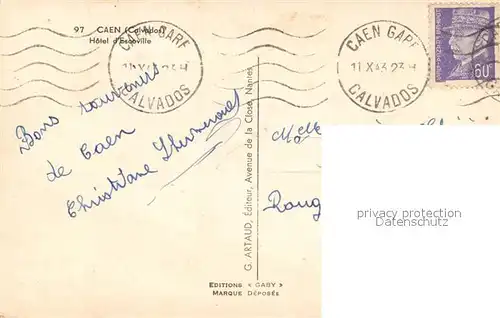 97 CAEN (Calvados)
Hôtel d'Escoville
CAEN GARE
CALVADOS
CAEN GARE
11 X 43 23H
CALVADOS
60
Bons souvenirs
de Caen
Christiane
Melle
Roug
G. ARTAUD, Éditeur, Avenue de la Close, Nantes
EDITIONS « GABY »
MARQUE DÉPOSÉE
privacy protection
Datenschutz